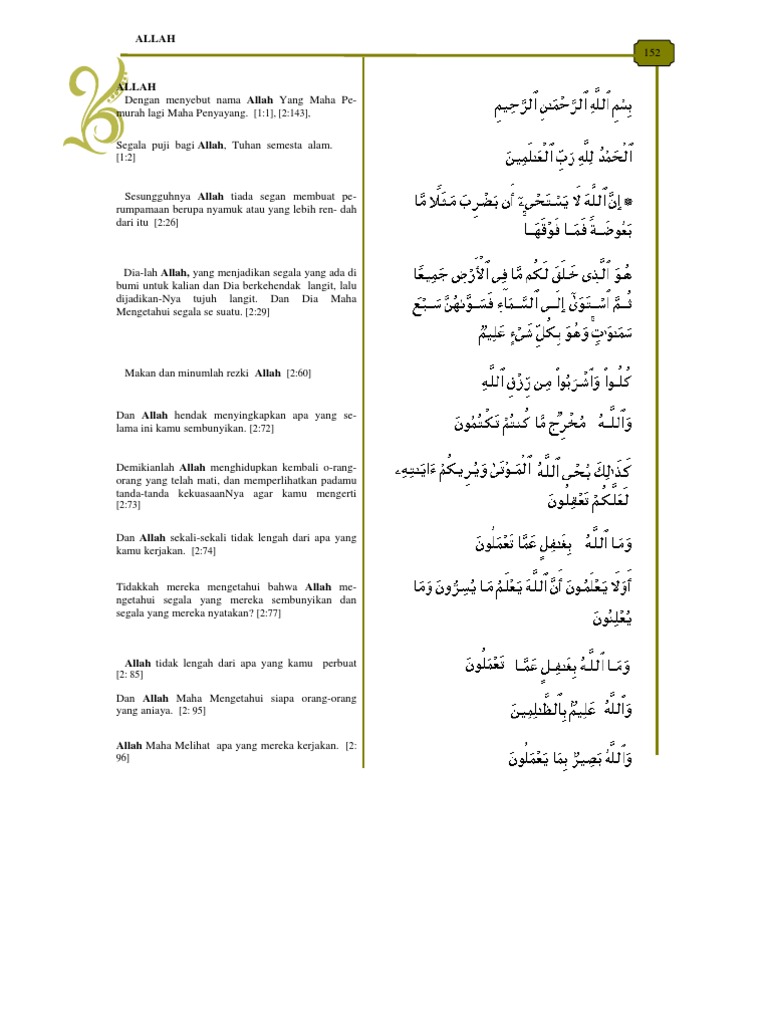 ALLAH
152
ALLAH
Dengan menyebut nama Allah Yang Maha Pe-
murah lagi Maha Penyayang. [1:1], [2:143],
Segala puji bagi Allah, Tuhan semesta alam.
[1:2]
Sesungguhnya Allah tiada segan membuat pe-
rumpamaan berupa nyamuk atau yang lebih ren- dah
dari itu [2:26]
Dia-lah Allah, yang menjadikan segala yang ada di
bumi untuk kalian dan Dia berkehendak langit, lalu
dijadikan-Nya tujuh langit. Dan Dia Maha
Mengetahui segala se suatu. [2:29]
Makan dan minumlah rezki Allah [2:60]
Dan Allah hendak menyingkapkan apa yang se-
lama ini kamu sembunyikan. [2:72]
Demikianlah Allah menghidupkan kembali o-rang-
orang yang telah mati, dan memperlihatkan padamu
tanda-tanda kekuasaanNya agar kamu mengerti
[2:73]
Dan Allah sekali-sekali tidak lengah dari apa yang
kamu kerjakan. [2:74]
Tidakkah mereka mengetahui bahwa Allah me-
ngetahui segala yang mereka sembunyikan dan
segala yang mereka nyatakan? [2:77]
Allah tidak lengah dari apa yang kamu perbuat
[2: 85]
Dan Allah Maha Mengetahui siapa orang-orang
yang aniaya. [2: 95]
Allah Maha Melihat apa yang mereka kerjakan. [2:
96]
بِسْمِ ٱللَّهِ ٱلرَّحْمَـٰنِ ٱلرَّحِيمِ
ٱلْحَمْدُ لِلَّهِ رَبِّ ٱلْعَـٰلَمِينَ
* إِنَّ ٱللَّهَ لَا يَسْتَحْىِۦٓ أَن يَضْرِبَ مَثَلًا مَّا
بَعُوضَةً فَمَا فَوْقَهَا ۚ
هُوَ ٱلَّذِى خَلَقَ لَكُم مَّا فِى ٱلْأَرْضِ جَمِيعًا
ثُمَّ ٱسْتَوَىٰٓ إِلَى ٱلسَّمَآءِ فَسَوَّىٰهُنَّ سَبْعَ
سَمَـٰوَٰتٍ ۚ وَهُوَ بِكُلِّ شَىْءٍ عَلِيمٌ
كُلُوا۟ وَٱشْرَبُوا۟ مِن رِّزْقِ ٱللَّهِ
وَٱللَّهُ مُخْرِجٌ مَّا كُنتُمْ تَكْتُمُونَ
كَذَٰلِكَ يُحْىِ ٱللَّهُ ٱلْمَوْتَىٰ وَيُرِيكُمْ ءَايَـٰتِهِۦ
لَعَلَّكُمْ تَعْقِلُونَ
وَمَا ٱللَّهُ بِغَـٰفِلٍ عَمَّا تَعْمَلُونَ
أَوَلَا يَعْلَمُونَ أَنَّ ٱللَّهَ يَعْلَمُ مَا يُسِرُّونَ وَمَا
يُعْلِنُونَ
وَمَا ٱللَّهُ بِغَـٰفِلٍ عَمَّا تَعْمَلُونَ
وَٱللَّهُ عَلِيمٌۢ بِٱلظَّـٰلِمِينَ
وَٱللَّهُ بَصِيرٌۢ بِمَا يَعْمَلُونَ